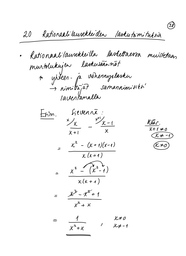 20 Rationaalilausekkeiden laskutoimituksia
• Rationaalilausekkeilla
murtolukujen laskusäännöt
* yhteen- ja vähennyslasku
→ nimittäjät samannimisiksi
laventamalla
Esim. Sievennä:
x/(x+1) - (x-1)/x
= (x² - (x+1)(x-1))/(x(x+1))
= (x² - (x²-1))/(x(x+1))
= (x² - x² + 1)/(x² + x)
= 1/(x² + x) , x≠0
x≠-1
x+1≠0
x≠-1
x≠0